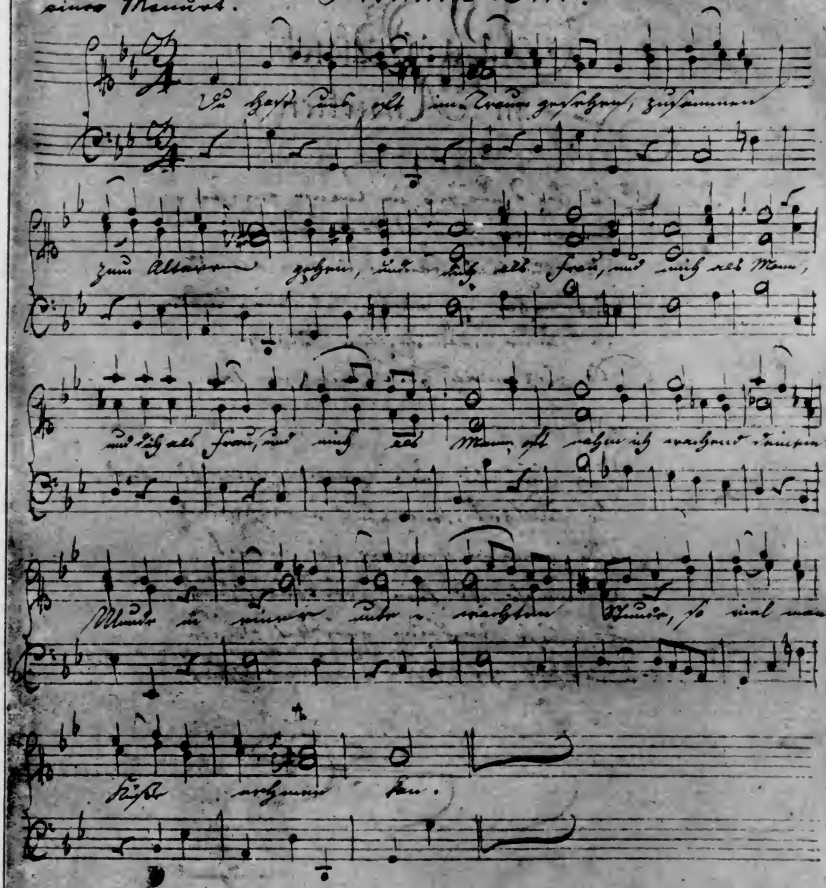 einer Menuet.
Du hast uns oft im Traum gesehen, zusammen
zum Altare gehen, und dich als Frau, und mich als Mann,
und dich als Frau, und mich als Mann, oft nahm ich wachend deinem
Munde in einer unbewachten Stunde, so viel man
Küße nehmen kan.